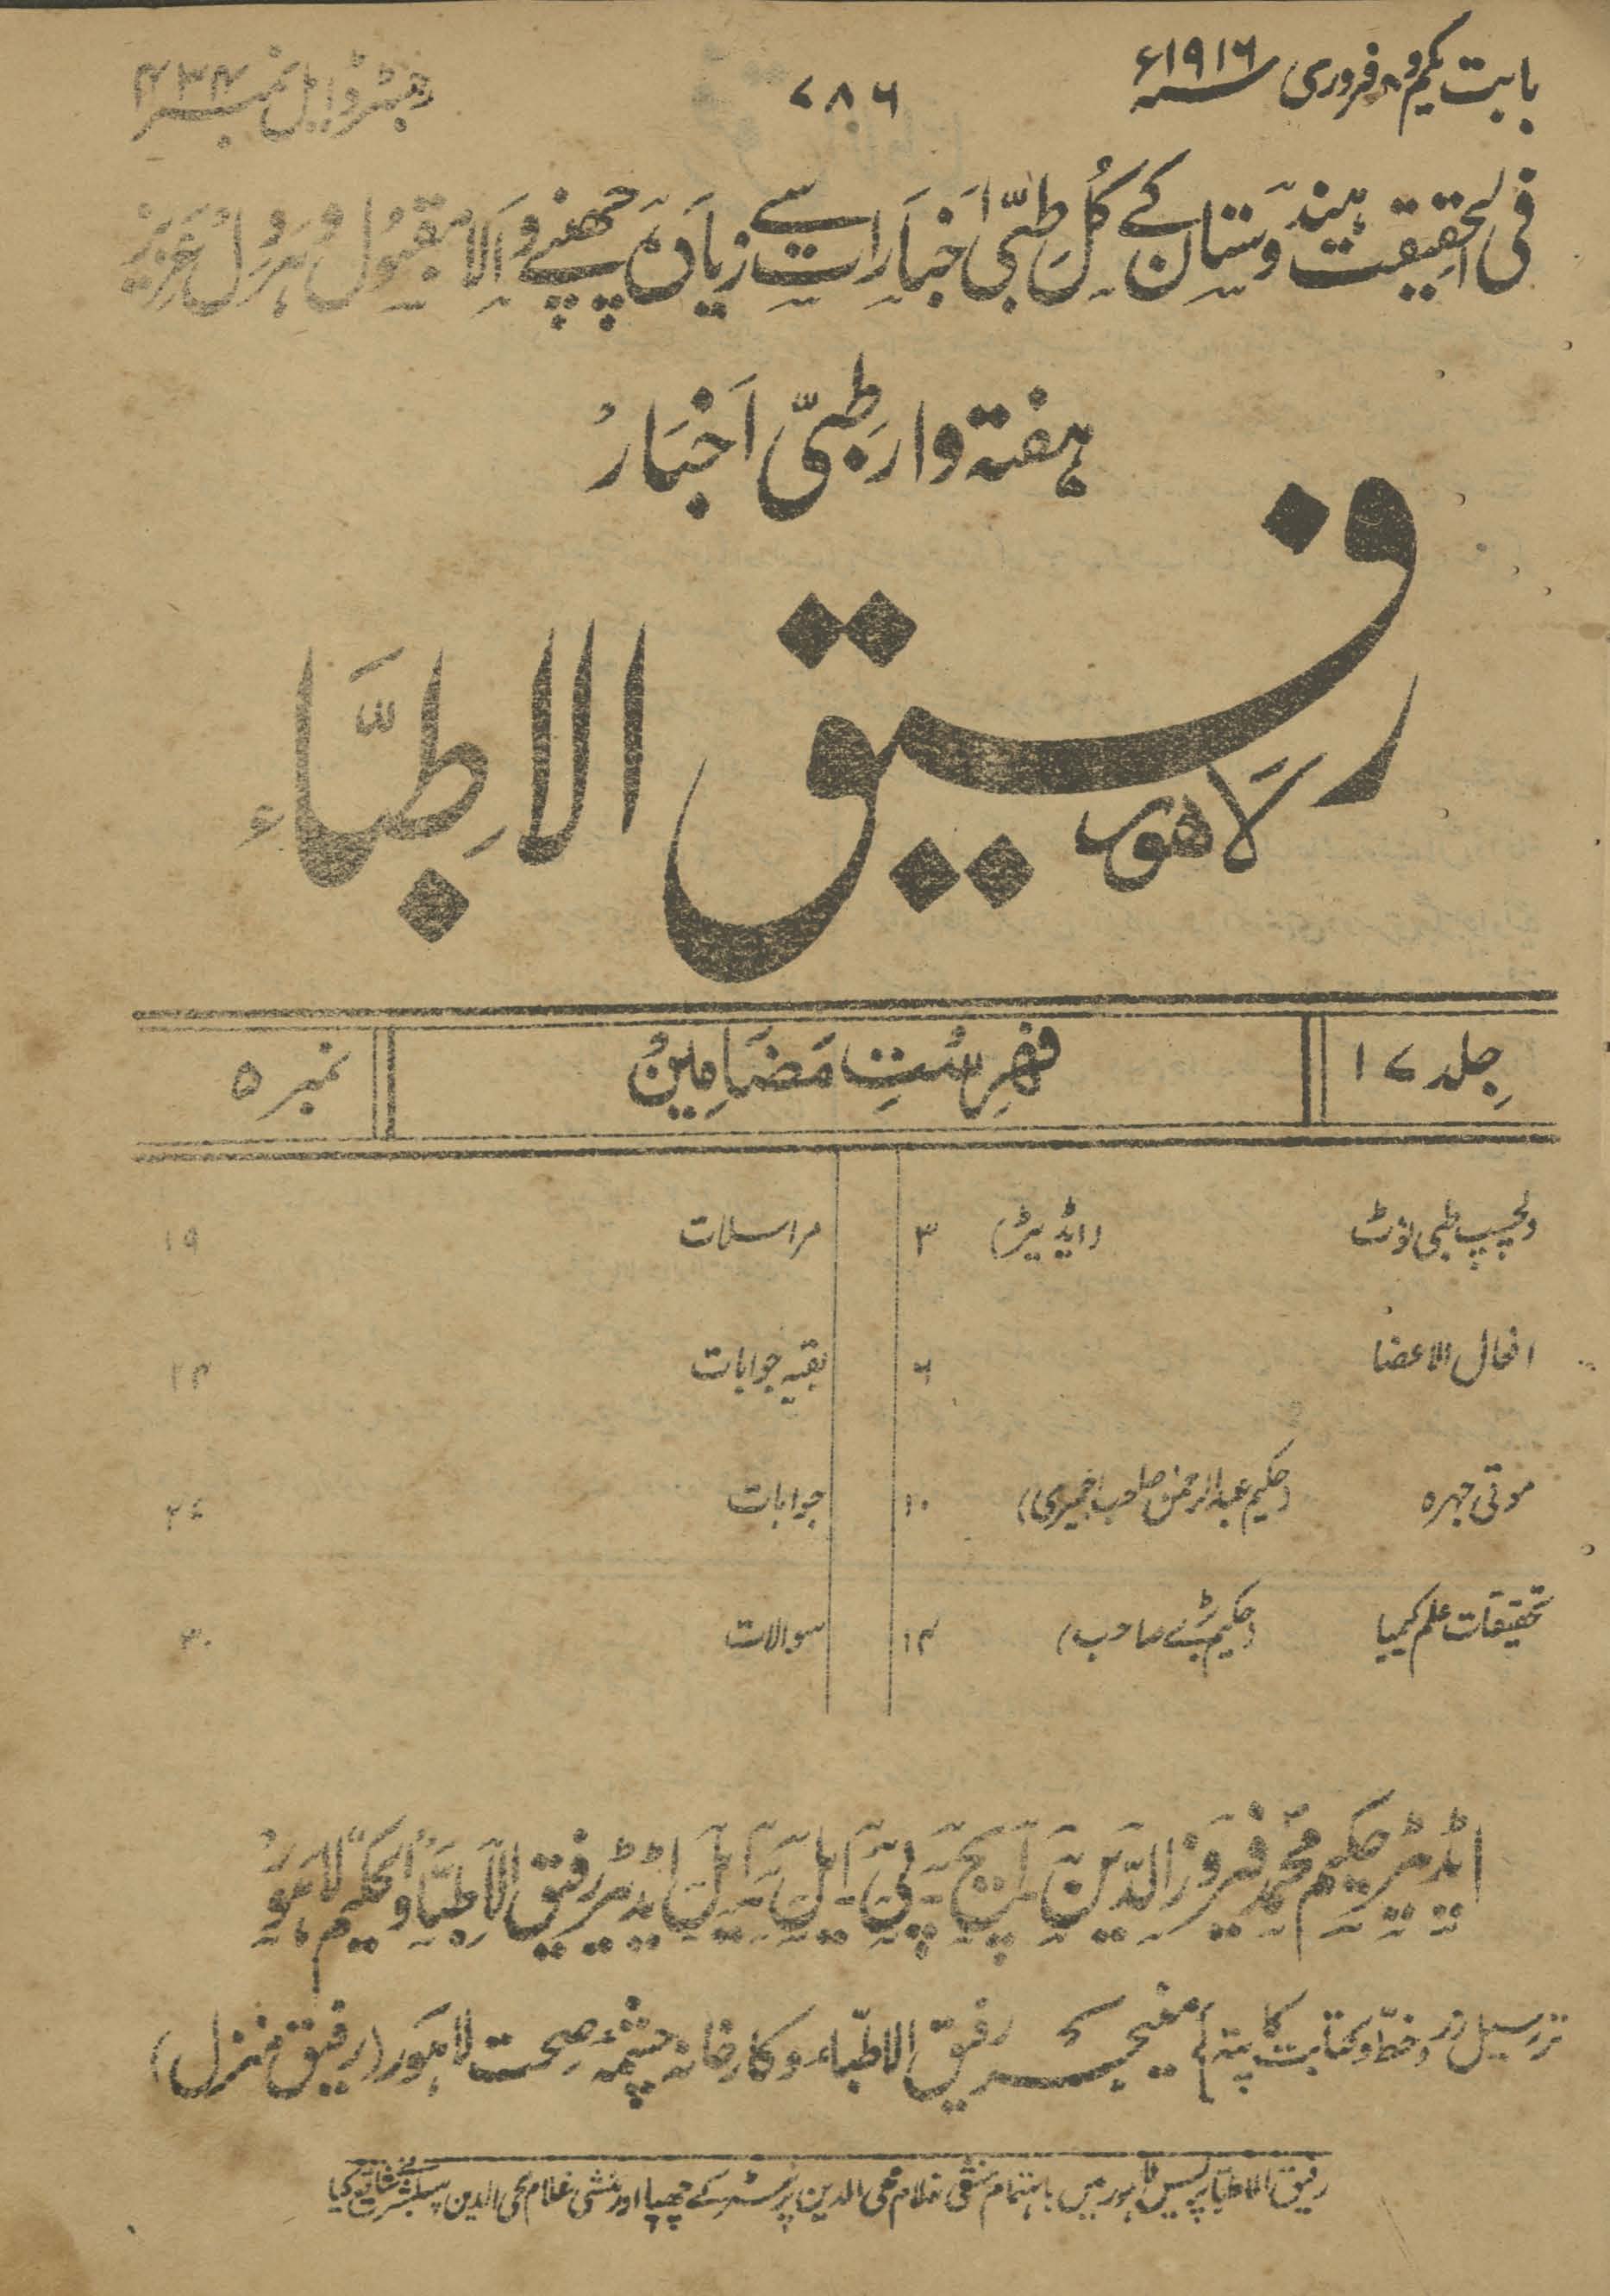 بابت یکم و ۸ فروری سنہ ۱۹۱۶ء
۷۸۶
رجسٹرڈ ایل نمبر ۴۳۴
فی الحقیقت ہندوستان کے کل طبّی اخبارات سے زیادہ چھپنے والا مقبول و ہر دل عزیز
ہفتہ وار طبّی اخبار
رفیق الاطبّاء
لاہور
جلد ۱۷
فہرست مضامین
نمبر ۵
دلچسپ طبی نوٹ (ایڈیٹر) ۳
افعال الاعضا ۶
موتی جہرہ (حکیم عبدالرحمن صاحب اجمیری) ۱۰
تحقیقات علم کیمیا (حکیم بڑے صاحب) ۱۴
مراسلات ۱۹
بقیہ جوابات ۲۴
جوابات
سوالات ۳۰
ایڈیٹر حکیم محمد فیروز الدین ایچ۔ پی۔ ایل۔ ایل۔ ایڈیٹر رفیق الاطباء و الحکیم لاہور
ترسیل زر و خط و کتابت کا پتہ } منیجر رفیق الاطبّاء و کارخانہ چشمۂ صحت لاہور (رفیق منزل)
رفیق الاطباء پریس لاہور میں باہتمام منشی غلام محی الدین پرنٹر کے چھپا اور منشی غلام محی الدین پبلشر نے شائع کیا